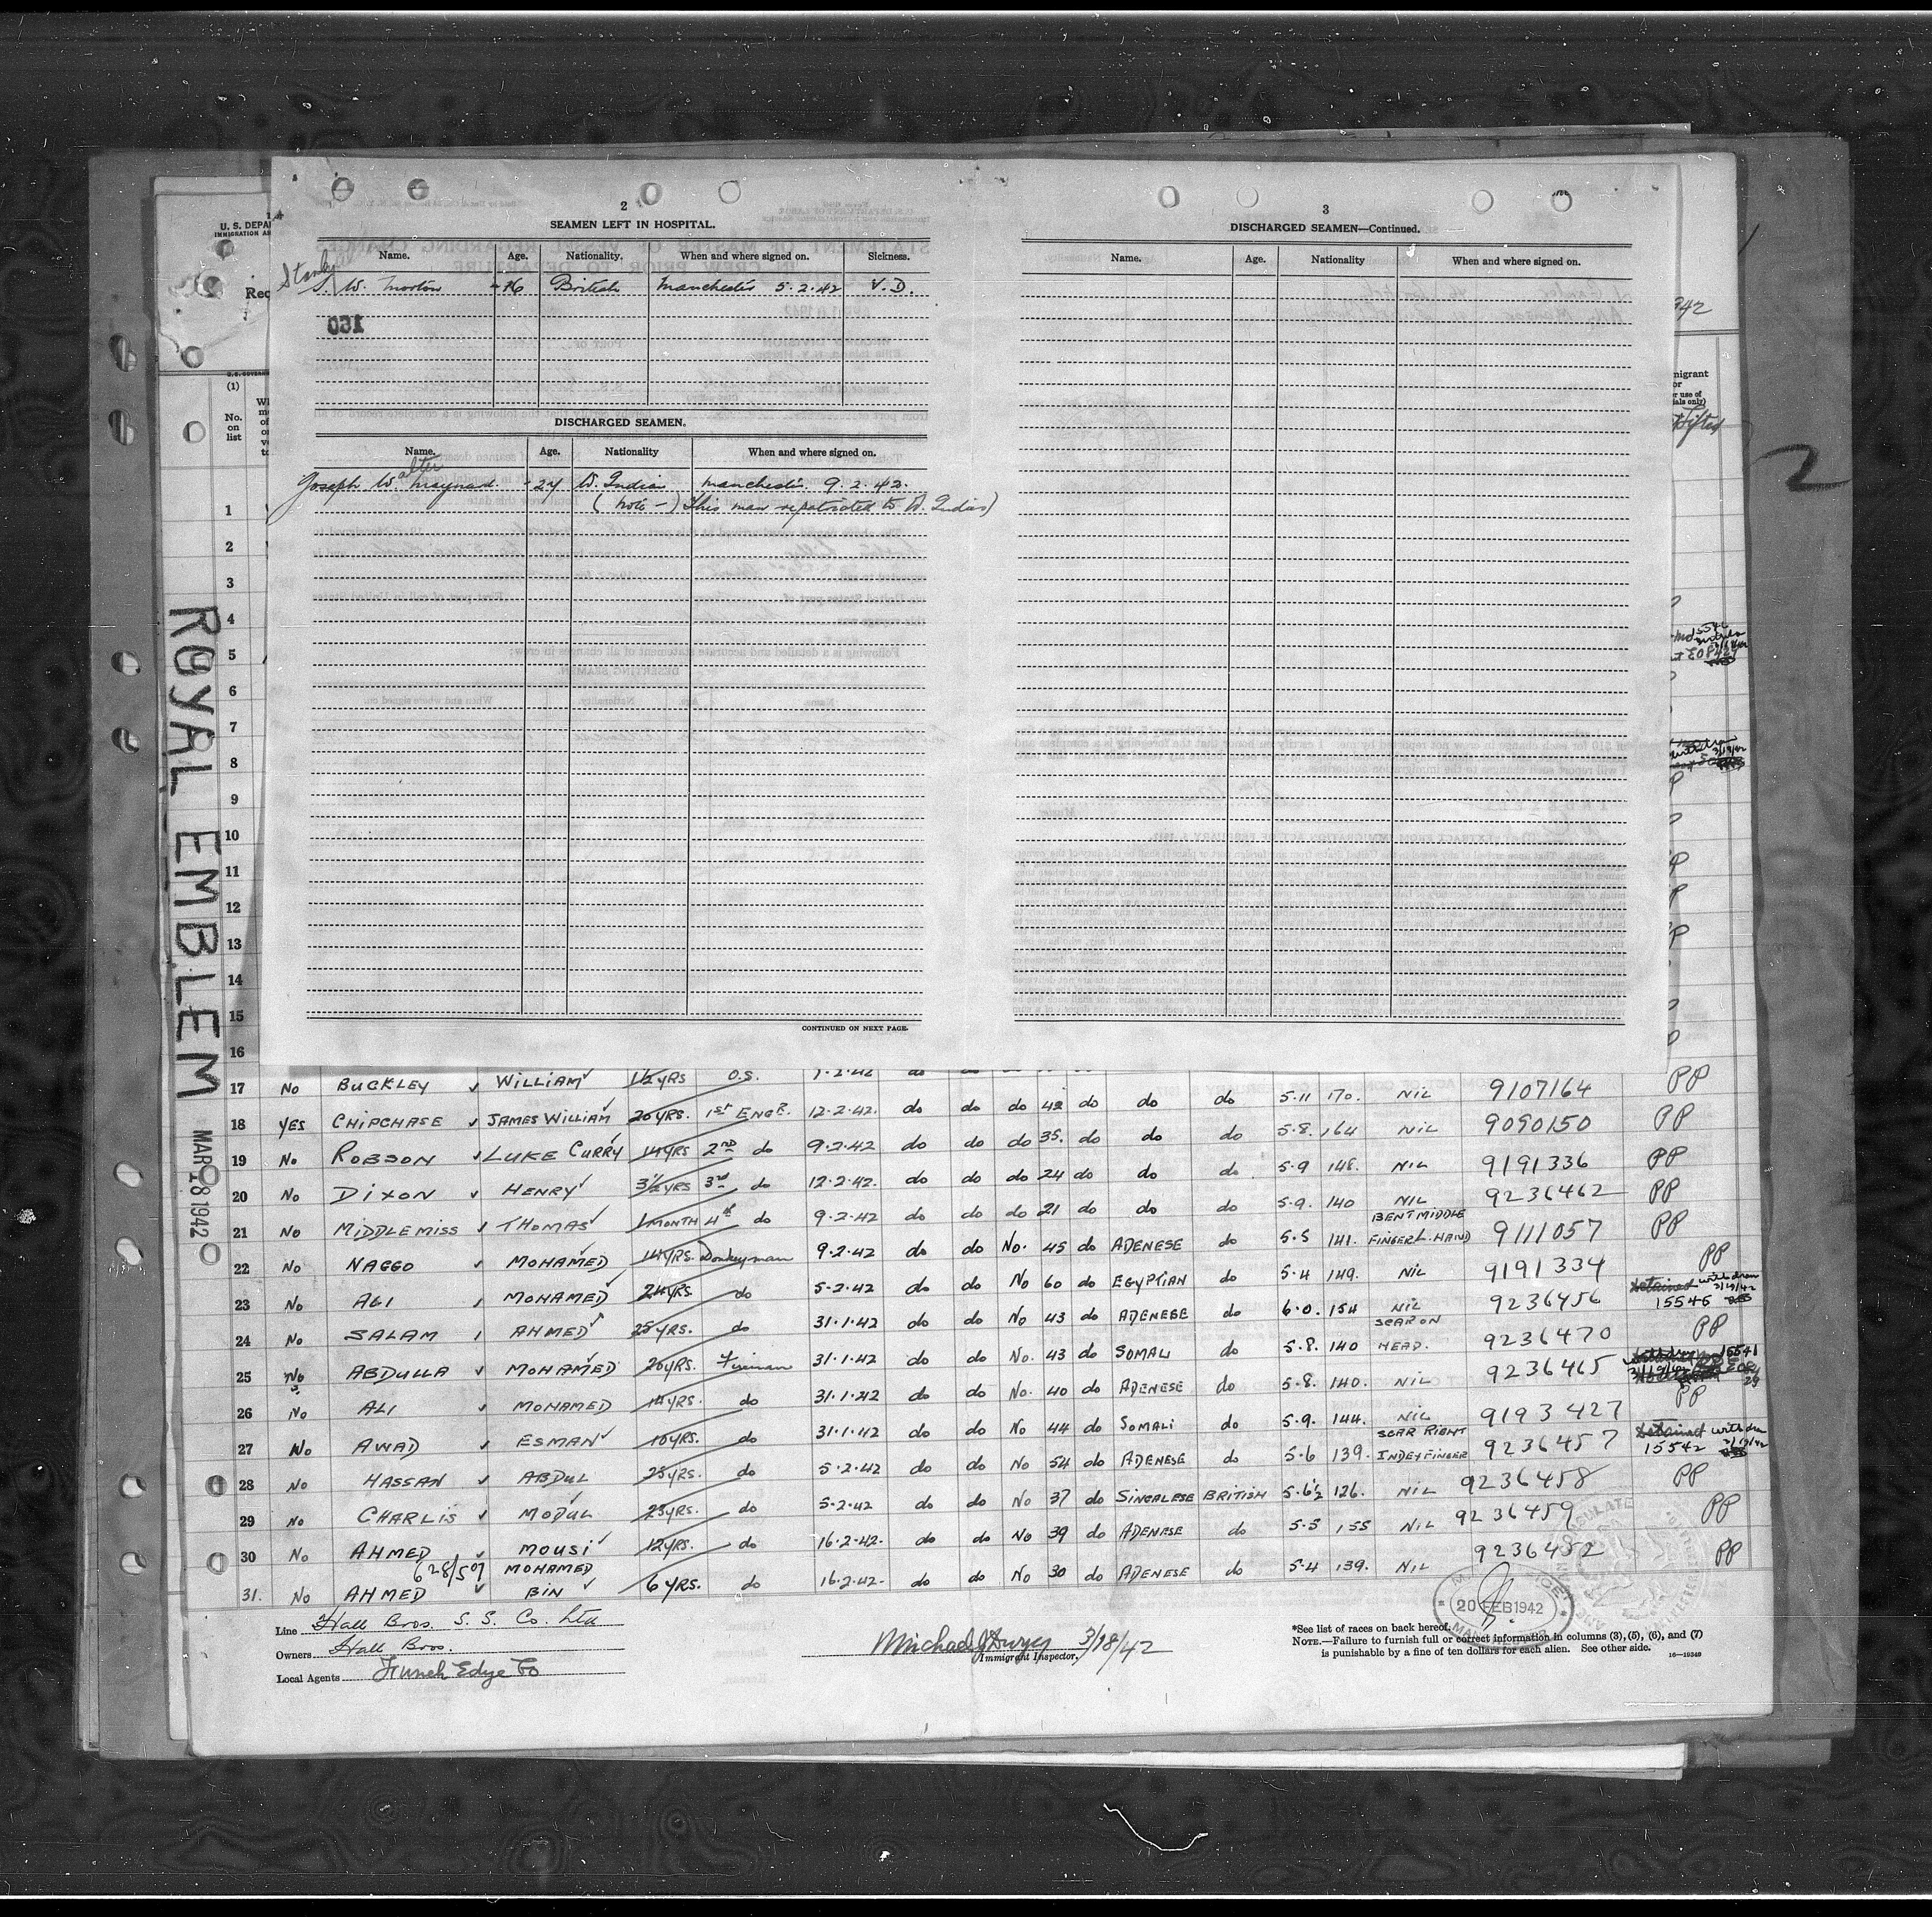 2
SEAMEN LEFT IN HOSPITAL.
Name. Age. Nationality. When and where signed on. Sickness.
Stanley
W. Morton British Manchester 5.2.42 V.D.
160
DISCHARGED SEAMEN.
Name. Age. Nationality When and where signed on.
alter
Joseph W. Maynard. 24 W. Indian Manchester. 9.2.42.
(Note -) This man repatriated to W. Indies)
CONTINUED ON NEXT PAGE.
3
DISCHARGED SEAMEN—Continued.
Name. Age. Nationality When and where signed on.
U. S. DEPA
IMMIGRATION A
(1)
No. on list
ROYAL EMBLEM
MAR 18 1942
2
1
2
3
4
5
6
7
8
9
10
11
12
13
14
15
16
17 No BUCKLEY WILLIAM 1½YRS O.S. 1-2-42 do do
9107164 PP
18 YES CHIPCHASE JAMES WILLIAM 20YRS. 1ST ENGR. 12-2-42. do do do 42 do do do 5-11 170. NIL 9090150 PP
19 No ROBSON LUKE CURRY 14YRS 2nd do 9-2-42 do do do 35. do do do 5-8. 164 NIL 9191336 PP
20 No DIXON HENRY 3½YRS 3rd do 12-2-42. do do do 24 do do do 5-9 148. NIL 9236462 PP
21 No MIDDLEMISS THOMAS 1 MONTH 4th do 9-2-42 do do do 21 do do do 5-9. 140 NIL 9111057 PP
22 No NAGGO MOHAMED 14YRS. Donkeyman 9-2-42 do do No. 45 do ADENESE do 5-5 141. BENT MIDDLE FINGER L. HAND 9191334 PP
23 No ALI MOHAMED 24YRS do 5-2-42 do do No 60 do EGYPTIAN do 5-4 149. NIL 9236456 Detained withdrawn 3/19/42 15546
24 No SALAM AHMED 25YRS. do 31-1-42 do do No 43 do ADENESE do 6-0. 154 NIL 9236470 PP
25 No ABDULLA MOHAMED 20YRS. Fireman 31-1-42 do do No. 43 do SOMALI do 5-8. 140 SCAR ON HEAD. 9236465 15541
26 No ALI MOHAMED 14YRS. do 31-1-42 do do No. 40 do ADENESE do 5-8. 140. NIL 9193427 PP
27 No AWAD ESMAN 10YRS. do 31-1-42 do do No 44 do SOMALI do 5-9. 144. NIL 9236457 Detained withdrawn 3/19/42 15542
28 No HASSAN ABDUL 25YRS. do 5-2-42 do do No 54 do ADENESE do 5-6 139. SCAR RIGHT INDEX FINGER 9236458 PP
29 No CHARLIS MODUL 23YRS. do 5-2-42 do do No 37 do SINGALESE BRITISH 5-6½ 126. NIL 9236459 PP
30 No AHMED MOUSI 12YRS. do 16-2-42. do do No 39 do ADENESE do 5-5 155 NIL 9236452 PP
628/507
31. No AHMED MOHAMED BIN 6YRS. do 16-2-42. do do No 30 do ADENESE do 5-4 139. NIL
Line Hall Bros. S. S. Co. Ltd
Owners Hall Bros.
Local Agents Funch Edye Co
3/18/42
Immigrant Inspector.
20 FEB 1942
*See list of races on back hereof.
NOTE.—Failure to furnish full or correct information in columns (3), (5), (6), and (7)
is punishable by a fine of ten dollars for each alien. See other side.
16—19349